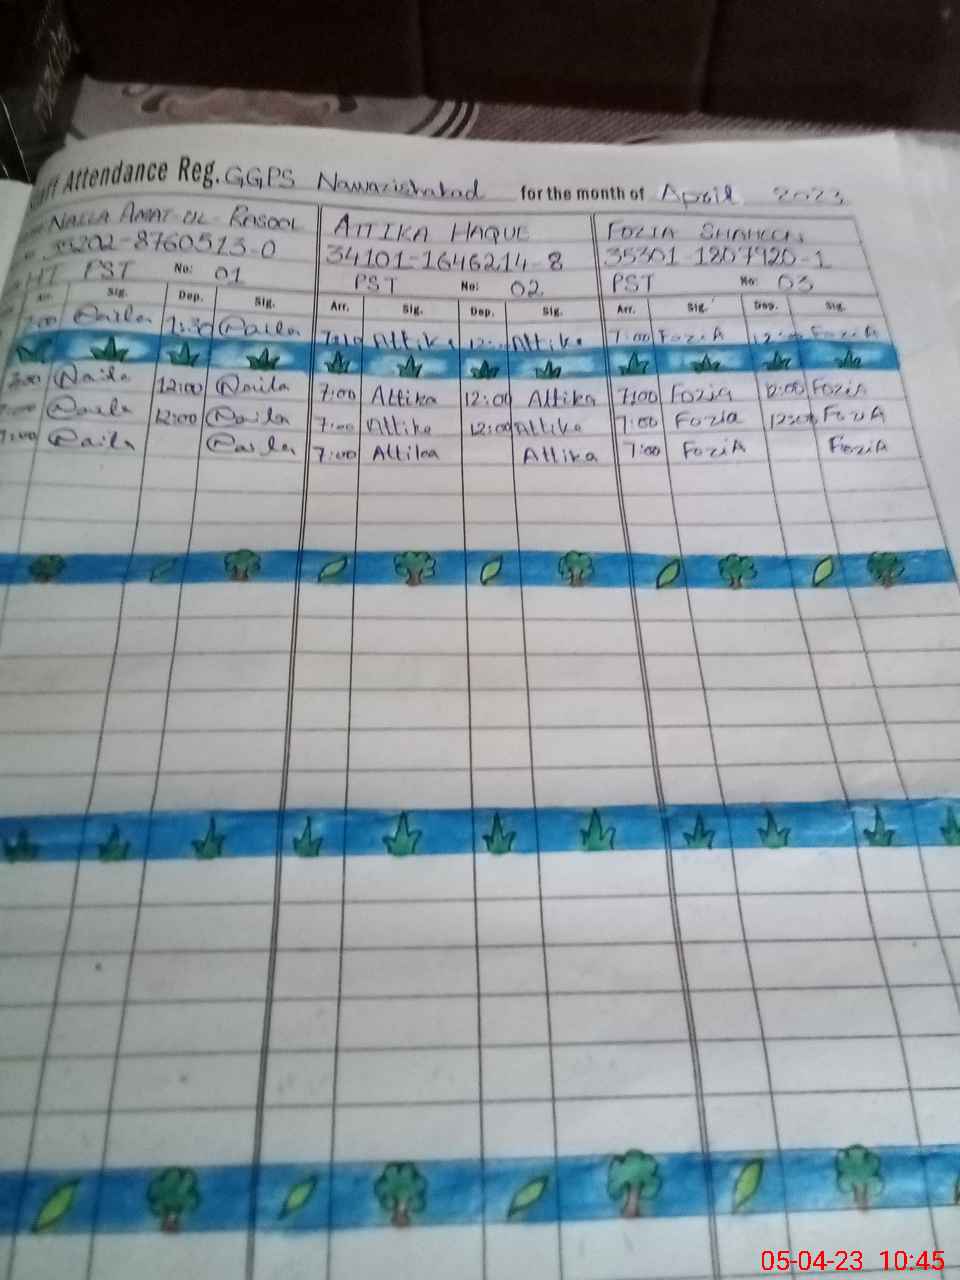 Attendance Reg. GGPS Nawazishabad for the month of April 2023
NAILA AMAT-UL-RASOOL ATTIKA HAQUE FOZIA SHAHEEN
35202-8760513-0 34101-1646214-8 35301-1207920-1
HT PST No: 01 PST No: 02 PST No: 03
Arr. Sig. Dep. Sig. Arr. Sig. Dep. Sig. Arr. Sig. Dep. Sig.
Naila 1:30 Naila Attika Attika 7:00 FoziA FoziA
7:00 Naila 12:00 Naila 7:00 Attika 12:00 Attika 7:00 Fozia 12:00 FoziA
7:00 Naila 12:00 Naila 7:00 Attika 12:00 Attika 7:00 Fozia 12:00 FoziA
7:00 Naila Naila 7:00 Attika Attika 7:00 FoziA FoziA
05-04-23 10:45